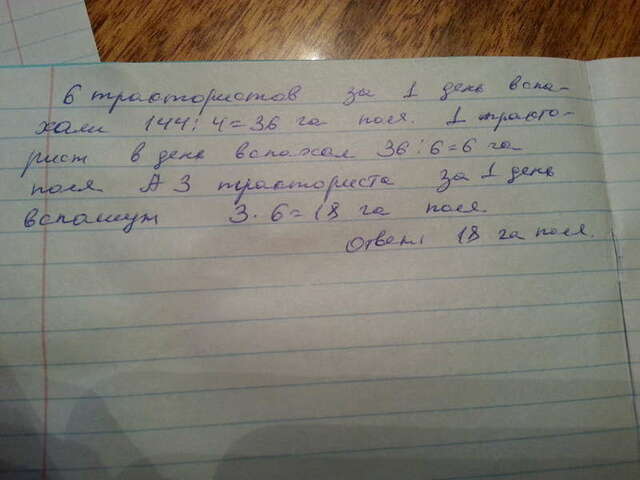 6 трактористов за 1 день вспа-
хали 144:4=36 га поля. 1 тракто-
рист в день вспахал 36:6=6 га
поля А 3 тракториста за 1 день
вспашут 3·6=18 га поля.
Ответ: 18 га поля.